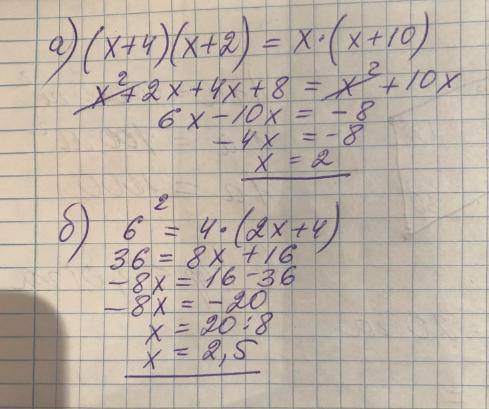 а) (x+4)(x+2) = x·(x+10)
x²+2x+4x+8 = x²+10x
6x-10x = -8
-4x = -8
x = 2
б) 6² = 4·(2x+4)
36 = 8x+16
-8x = 16-36
-8x = -20
x = 20:8
x = 2,5